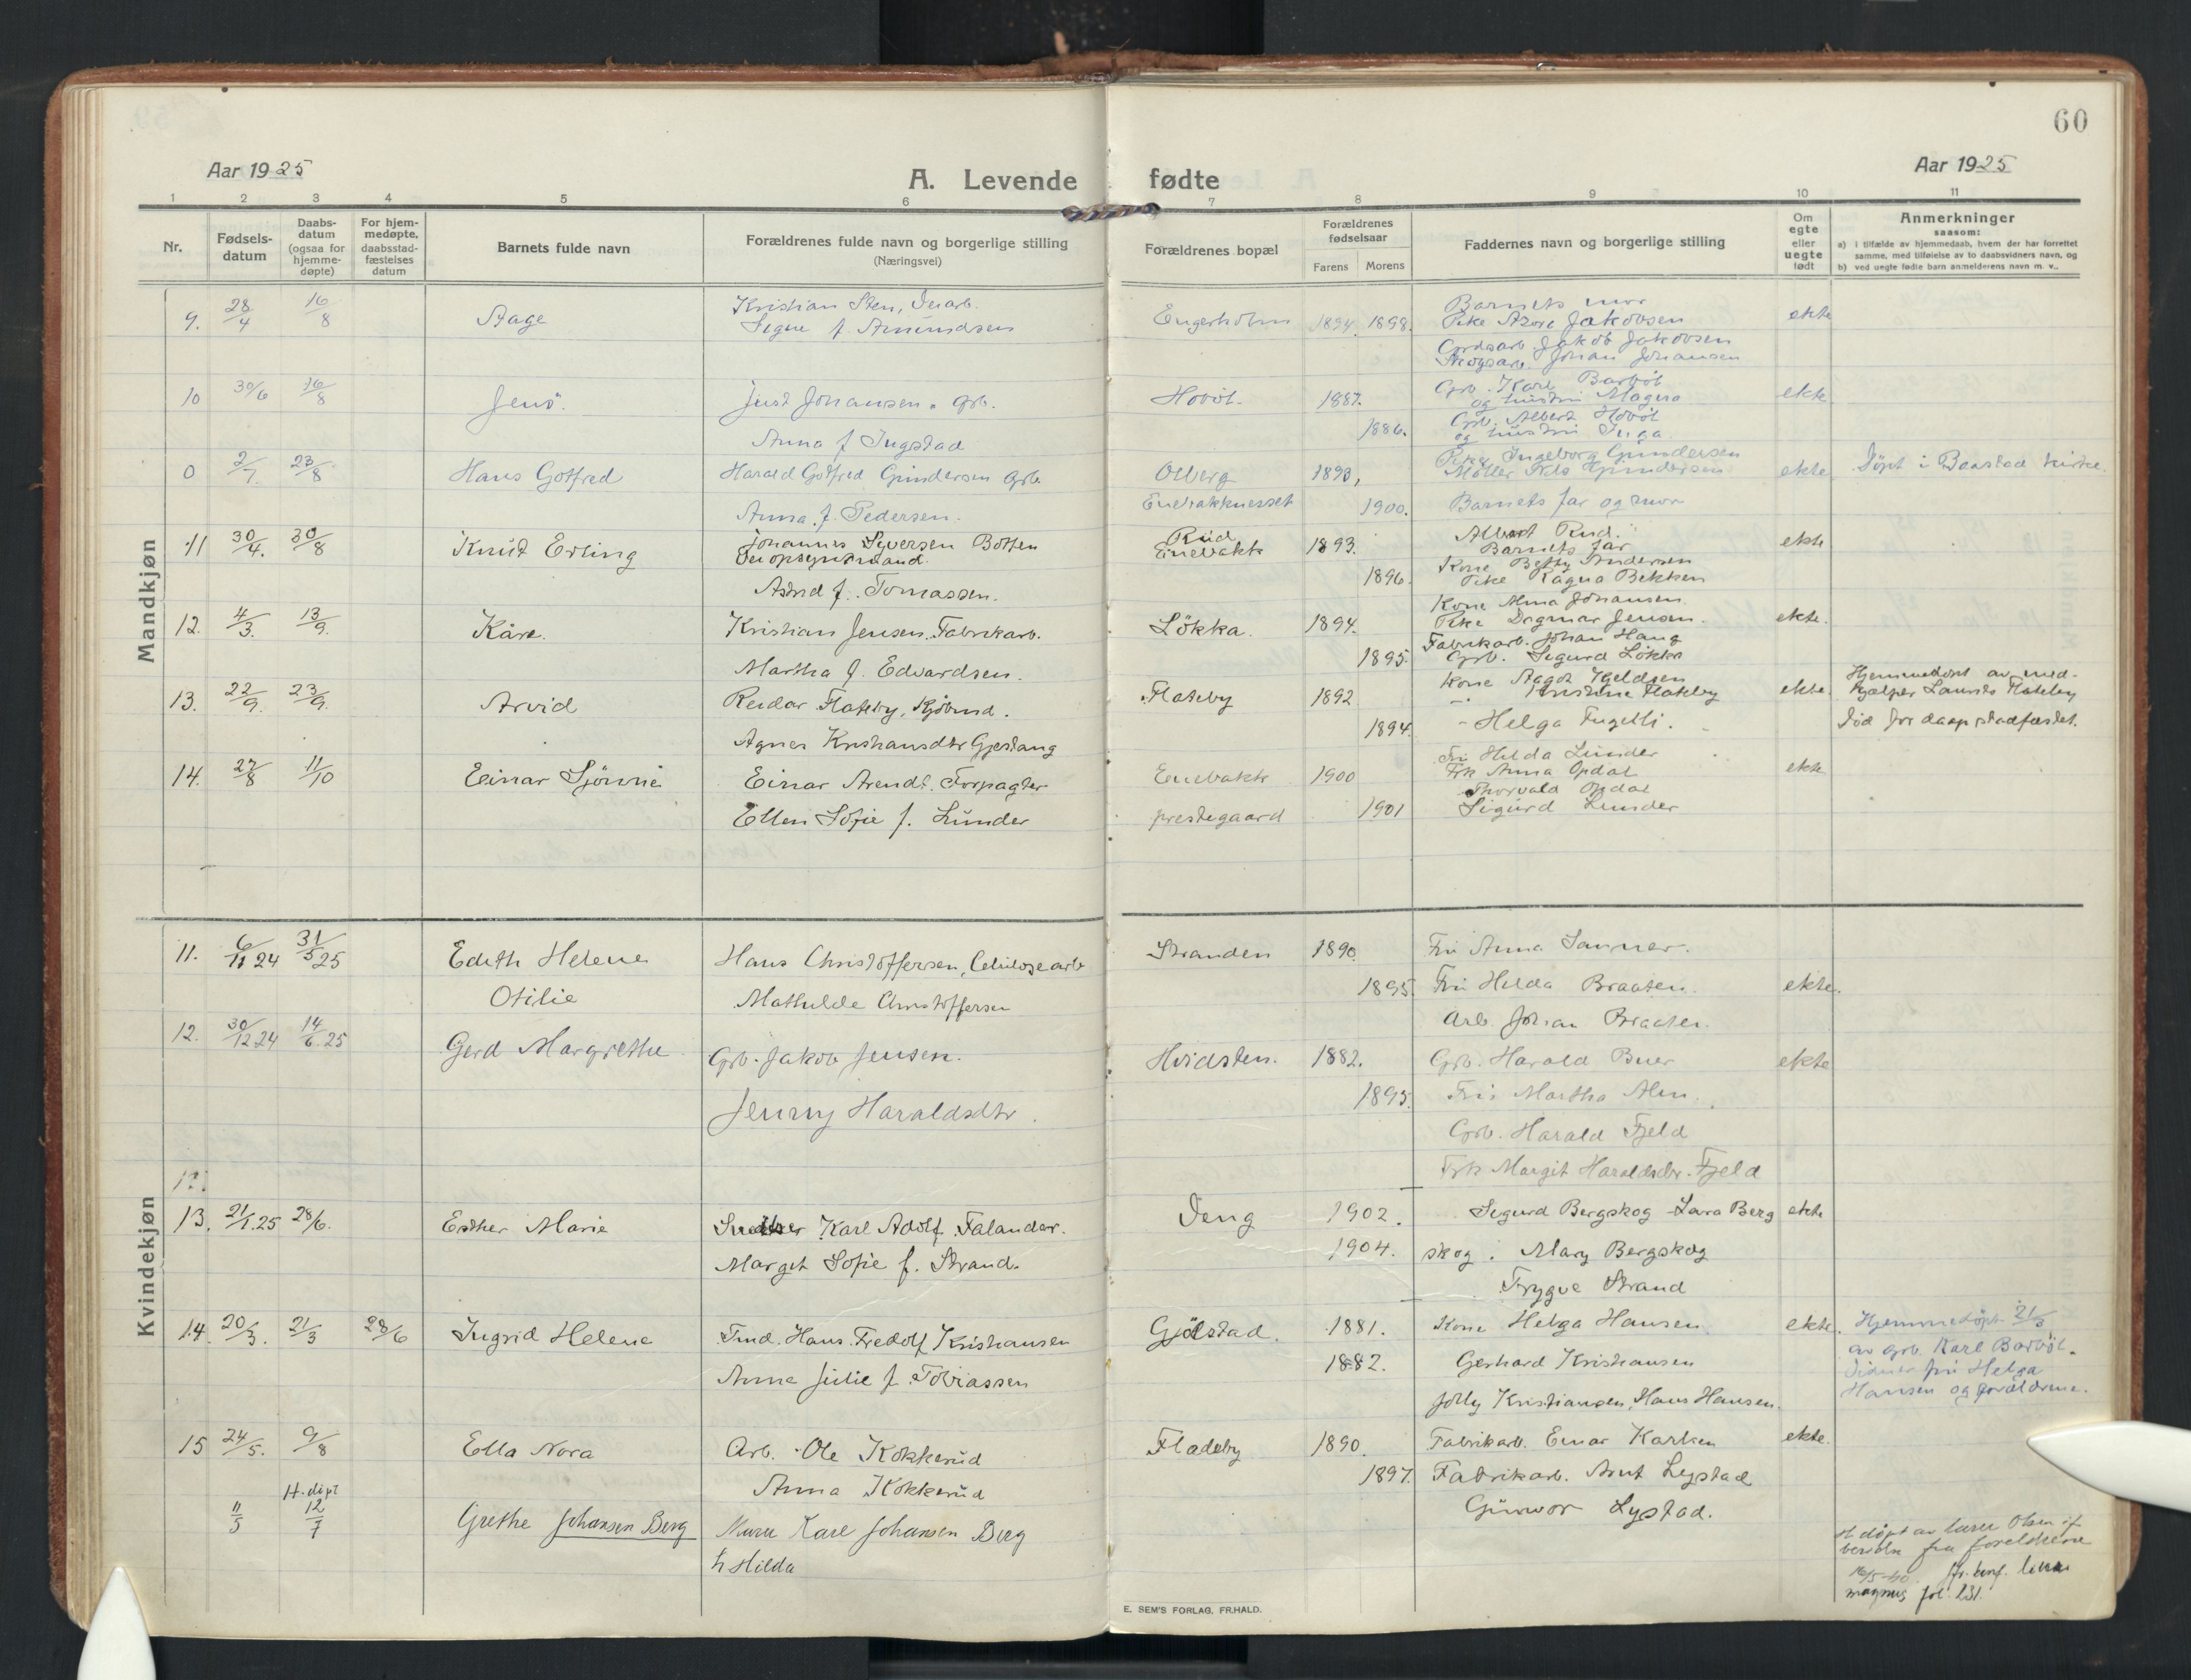 60
Aar 1925
A. Levende fødte
Aar 1925
1 2 3 4 5 6 7 8 9 10 11
Nr.
Fødsels-
datum
Daabs-
datum
(ogsaa for
hjemme-
døpte)
For hjem-
medøpte,
daabsstad-
fæstelses
datum
Barnets fulde navn
Forældrenes fulde navn og borgerlige stilling
(Næringsvei)
Forældrenes bopæl
Forældrenes
fødselsaar
Farens Morens
Faddernes navn og borgerlige stilling
Om
egte
eller
uegte
født
Anmerkninger
saasom:
a) i tilfælde av hjemmedaab, hvem der har forrettet
samme, med tilføielse av to daabsvidners navn, og
b) ved uegte fødte barn anmelderens navn m. v..
Mandkjøn
9. 28/4 16/8 Aage
Kristian Sten,
Signe f. Amundsen
Engerholm 1894 1898.
Barnets mor
Pike Jakobsen
Jakob Jakobsen
Skogsarb. Johan Johansen
ekte
10 30/6 16/8 Jens.
Just Johansen. Grb.
Anna f
Hovöl. 1887.
1886.
Grb. Karl Barböl
og hustru Magna
Grb. Albert Hovöl
og hustru Inga.
ekte
0 2/7 23/8 Hans Gotfred
Harald Gotfred Gundersen Grb.
Anna f. Pedersen.
Olberg
Enebakkneset
1893,
1900.
Pike Ingeborg Gundersen
Möller Nils Gundersen
Barnets far og mor
ekte
Döpt i Baastad kirke.
11 30/4. 30/8 Knut Erling
Johannes Syversen Botten
Astrid f. Tomassen.
Rud
Enebakk
1893.
1896.
Albert Rud.
Barnets far
Kone Betsy Andersen
Pike Ragna Bekken
ekte
12. 4/3. 13/9. Kåre.
Kristian Jensen. Fabrikarb.
Martha f. Edvardsen.
Lökka. 1894.
1895.
Kone Alma Johansen.
Pike Dagmar Jensen.
Fabrikarb. Johan Haug
Grb. Sigurd Lökka
ekte.
13. 22/9. 23/9. Arvid
Reidar Flateby, Kjöbmd.
Agnes Kristiansdtr Gjestang
Flateby 1892
1894.
Kone Aagot
-"- Kristine Flateby
- Helga
ekte.
Hjemmedöpt av
hjælper Flateby
Död för daap stadfæstet.
14. 27/8 11/10 Einar
Einar Arendt. Forpagter
Ellen Sofie f. Lunder
Enebakk
prestegaard
1900
1901
Fru Hilda Lunder
Frk Anna Opdal
Thorvald Opdal
Sigurd Lunder
ekte
Kvindekjøn
11. 6/11 24 31/5 25 Edith Helene
Otilie
Hans Christoffersen, Cellulosearb
Mathilde Christoffersen
Stranden 1890.
1895.
Fru Anna Sanner.
Fru Hilda Braaten.
Arb. Johan Braaten.
ekte.
12. 30/12 24 14/6.25 Gerd Margrethe
Grb. Jakob Jensen.
Jenny Haraldsdtr.
Hvidsten. 1882.
1893.
Grb. Harald Buer
Fru Martha
Grb. Harald Fjeld
Frk Margit Haraldsdtr. Fjeld
ekte
13. 21/1.25 28/6. Esther Marie
Karl Adolf Falander.
Margit Sofie f. Strand.
1902.
1904.
Sigurd Bergskog Lara Berg
skog. Mary Bergskog
Trygve Strand
ekte
14. 20/3. 21/3 28/6 Ingrid Helene
Tmd. Hans Fredolf Kristiansen
Anna Julie f. Tobiassen
Gjölstad. 1881.
1882.
Kone Helga Hansen
Gerhard Kristiansen
Jolly Kristiansen, Hans Hansen.
ekte.
Hjemmedöpt 21/3
av grb. Karl Barböl.
Vidner fru Helga
Hansen og foreldrene.
15 24/5. 9/8 Ella Nora
Arb. Ole Kokkerud
Anna Kokkerud
Fladeby 1890.
1897.
Fabrikarb. Einar Karlsen
Fabrikarb. Arnt Lystad
Gunvor Lystad.
ekte.
11/5 H. döpt 12/7 Grethe Johansen Berg
Murer Karl Johansen Berg
h Hilda
H. döpt av lærer Olsen if.
fra foreldrene
16/5-40.
fol. 231.
E. SEM'S FORLAG, FR.HALD.